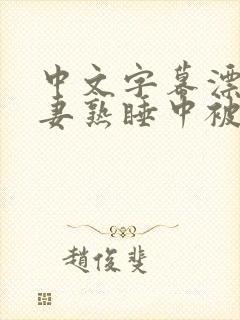 中文字幕漂
妻熟睡中被
趙俊斐